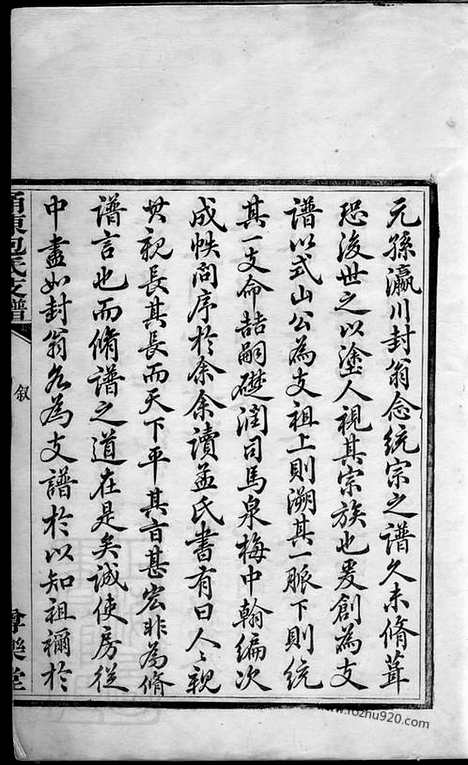 元孫瀛川封翁念統宗之譜久未脩葺
恐後世之以塗人視其宗族也爰創為支
譜以式山公為支祖上則溯其一脈下則統
其一支命喆嗣礎潤司馬泉梅中翰編次
成帙問序於余余讀孟氏書有曰人〻親
其親長其長而天下平其言甚宏非為脩
譜言也而脩譜之道在是矣誠使房從
中盡如封翁各為支譜於以知祖禰於
東包氏支譜
敘
樂堂
www.fozhu920.com